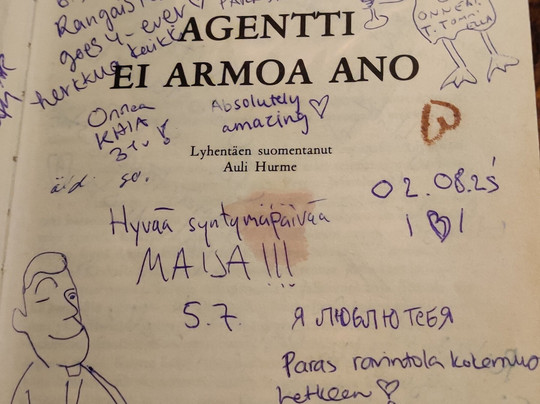 goes 4-ever
herkkua kaikki
AGENTTI
EI ARMOA ANO
ONNEA!
T. Tommi
ELLA
Onnea
KHIA
3tv!
Absolutely
amazing ♡
Lyhentäen suomentanut
Auli Hurme
02.08.25
Hyvää syntymäpäivää
MAIJA!!!
5.7.
Я ЛЮБЛЮ ТЕБЯ
Paras ravintola kokemus
hetkeen ♡